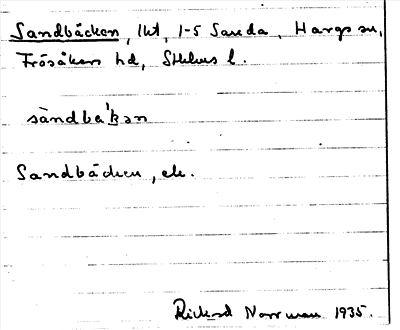 Sandbäcken, lht, 1-5 Sanda, Hargs sn,
Frösåkers hd, Sthlms l.
sàndbäkən
Sandbäcken, ek.
Rickard Norrman 1935.